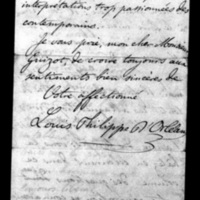 interprétations trop passionnées des
contemporains.
Je vous prie, mon cher Monsieur
Guizot, de croire toujours aux
sentiments bien sincères de
Votre affectionné
Louis Philippe D'Orléans